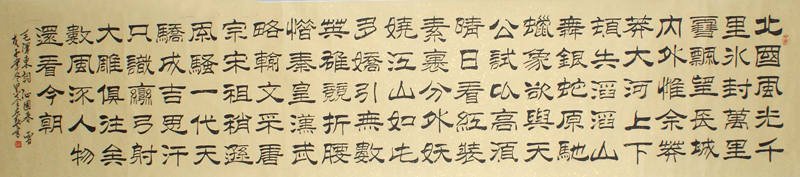 北國風光千
里冰封萬里
雪飄望長城
內外惟余莽
莽大河上下
頓失滔滔山
舞銀蛇原馳
蠟象欲與天
公試比高須
晴日看紅裝
素裹分外妖
嬈江山如此
多嬌引無數
英雄競折腰
惜秦皇漢武
略輸文采唐
宗宋祖稍遜
風騷一代天
驕成吉思汗
只識彎弓射
大雕俱往矣
數風流人物
還看今朝
毛澤東詞沁園春雪